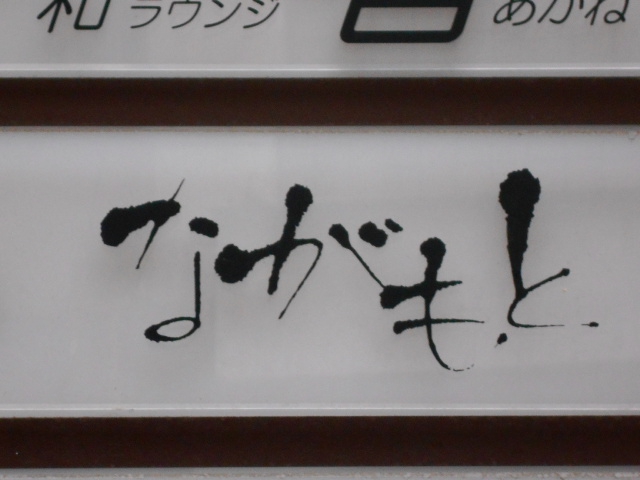 和 ラウンジ あかね
ながもと